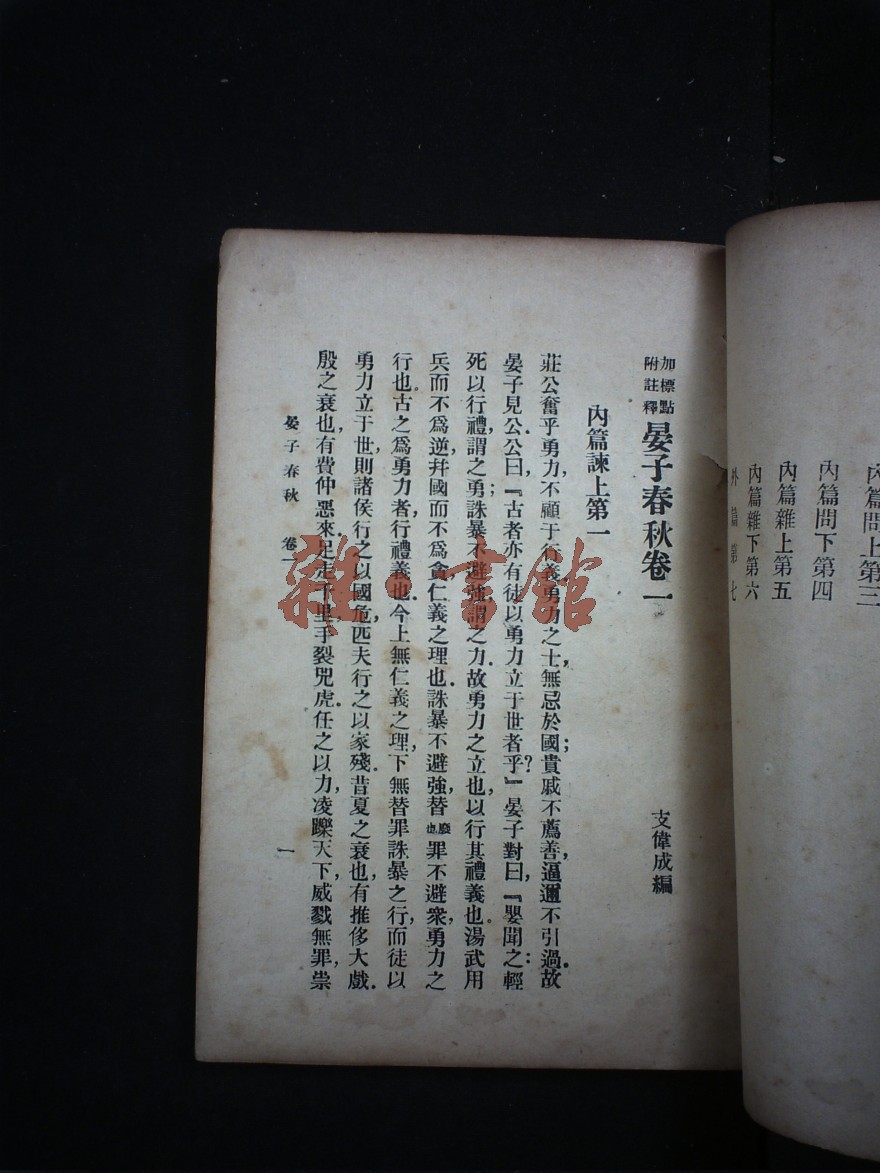 內篇問上第三
內篇問下第四
內篇雜上第五
內篇雜下第六
外篇第七
加標點
附註釋
晏子春秋卷一
支偉成編
內篇諫上第一
莊公奮乎勇力，不顧于行義勇力之士，無忌於國；貴戚不薦善，逼邇不引過．故
晏子見公．公曰，『古者亦有徒以勇力立于世者乎？』晏子對曰：『嬰聞之輕
死以行禮，謂之勇；誅暴不避強，謂之力．故勇力之立也，以行其禮義也．湯武用
兵而不爲逆，幷國而不爲貪，仁義之理也．誅暴不避強，替廢也罪不避衆，勇力之
行也．古之爲勇力者，行禮義也．今上無仁義之理，下無替罪誅暴之行，而徒以
勇力立于世，則諸侯行之以國危，匹夫行之以家殘．昔夏之衰也，有推侈大戲．
殷之衰也，有費仲惡來，足走千里，手裂兕虎，任之以力，凌轢天下，威戮無罪，崇
晏子春秋　卷一
一
雜·書館